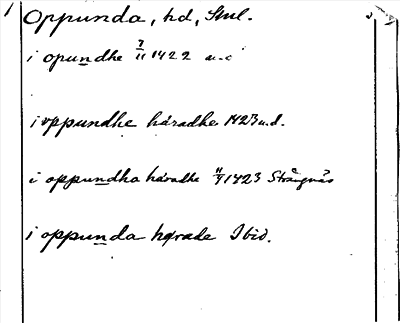 Oppunda, hd, Sml.
i opundhe 7/11 1422 u.c
i oppundhe háradhe 1423 u.d.
i oppundha háradhe 11/7 1423 Strängnäs
i oppunda hǫrade Ibid.